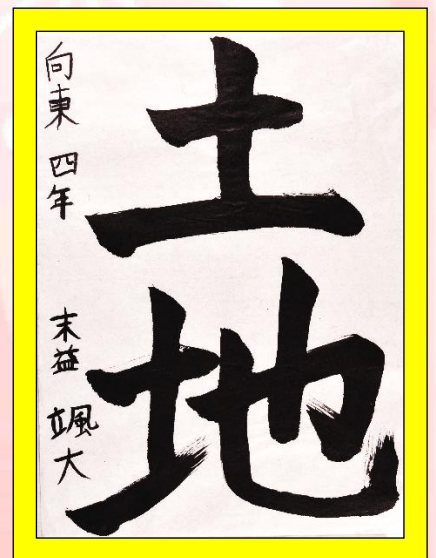 土地
向東 四年 末益 颯大